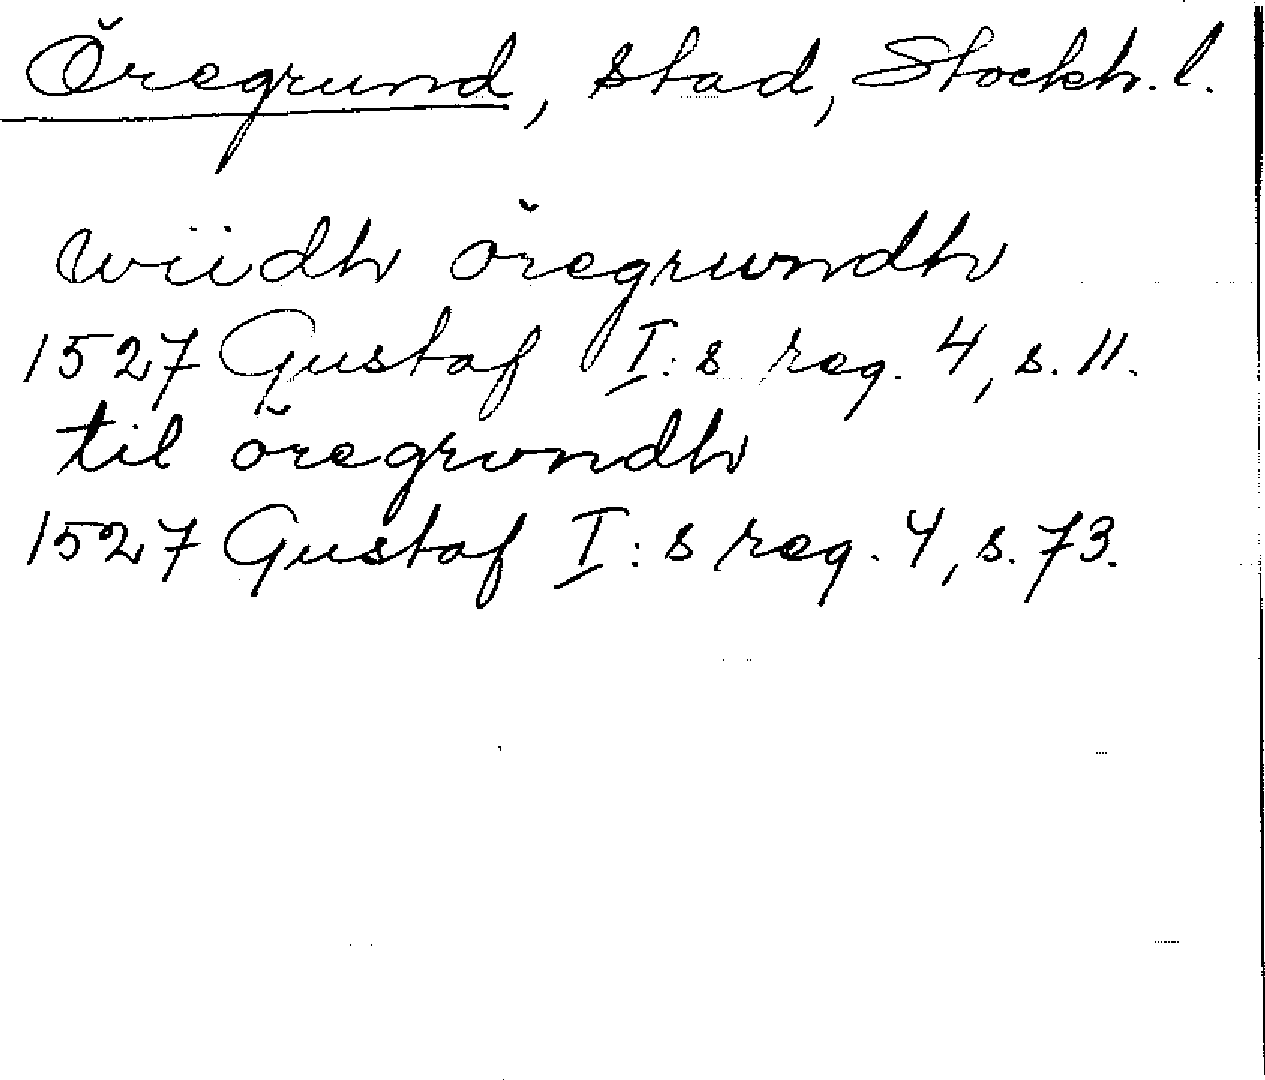 Öregrund, stad, Stockh. l.
wiidh öregrwndh
1527 Gustaf I:s reg. 4, s. 11.
til öregrvndh
1527 Gustaf I:s reg. 4, s. 73.